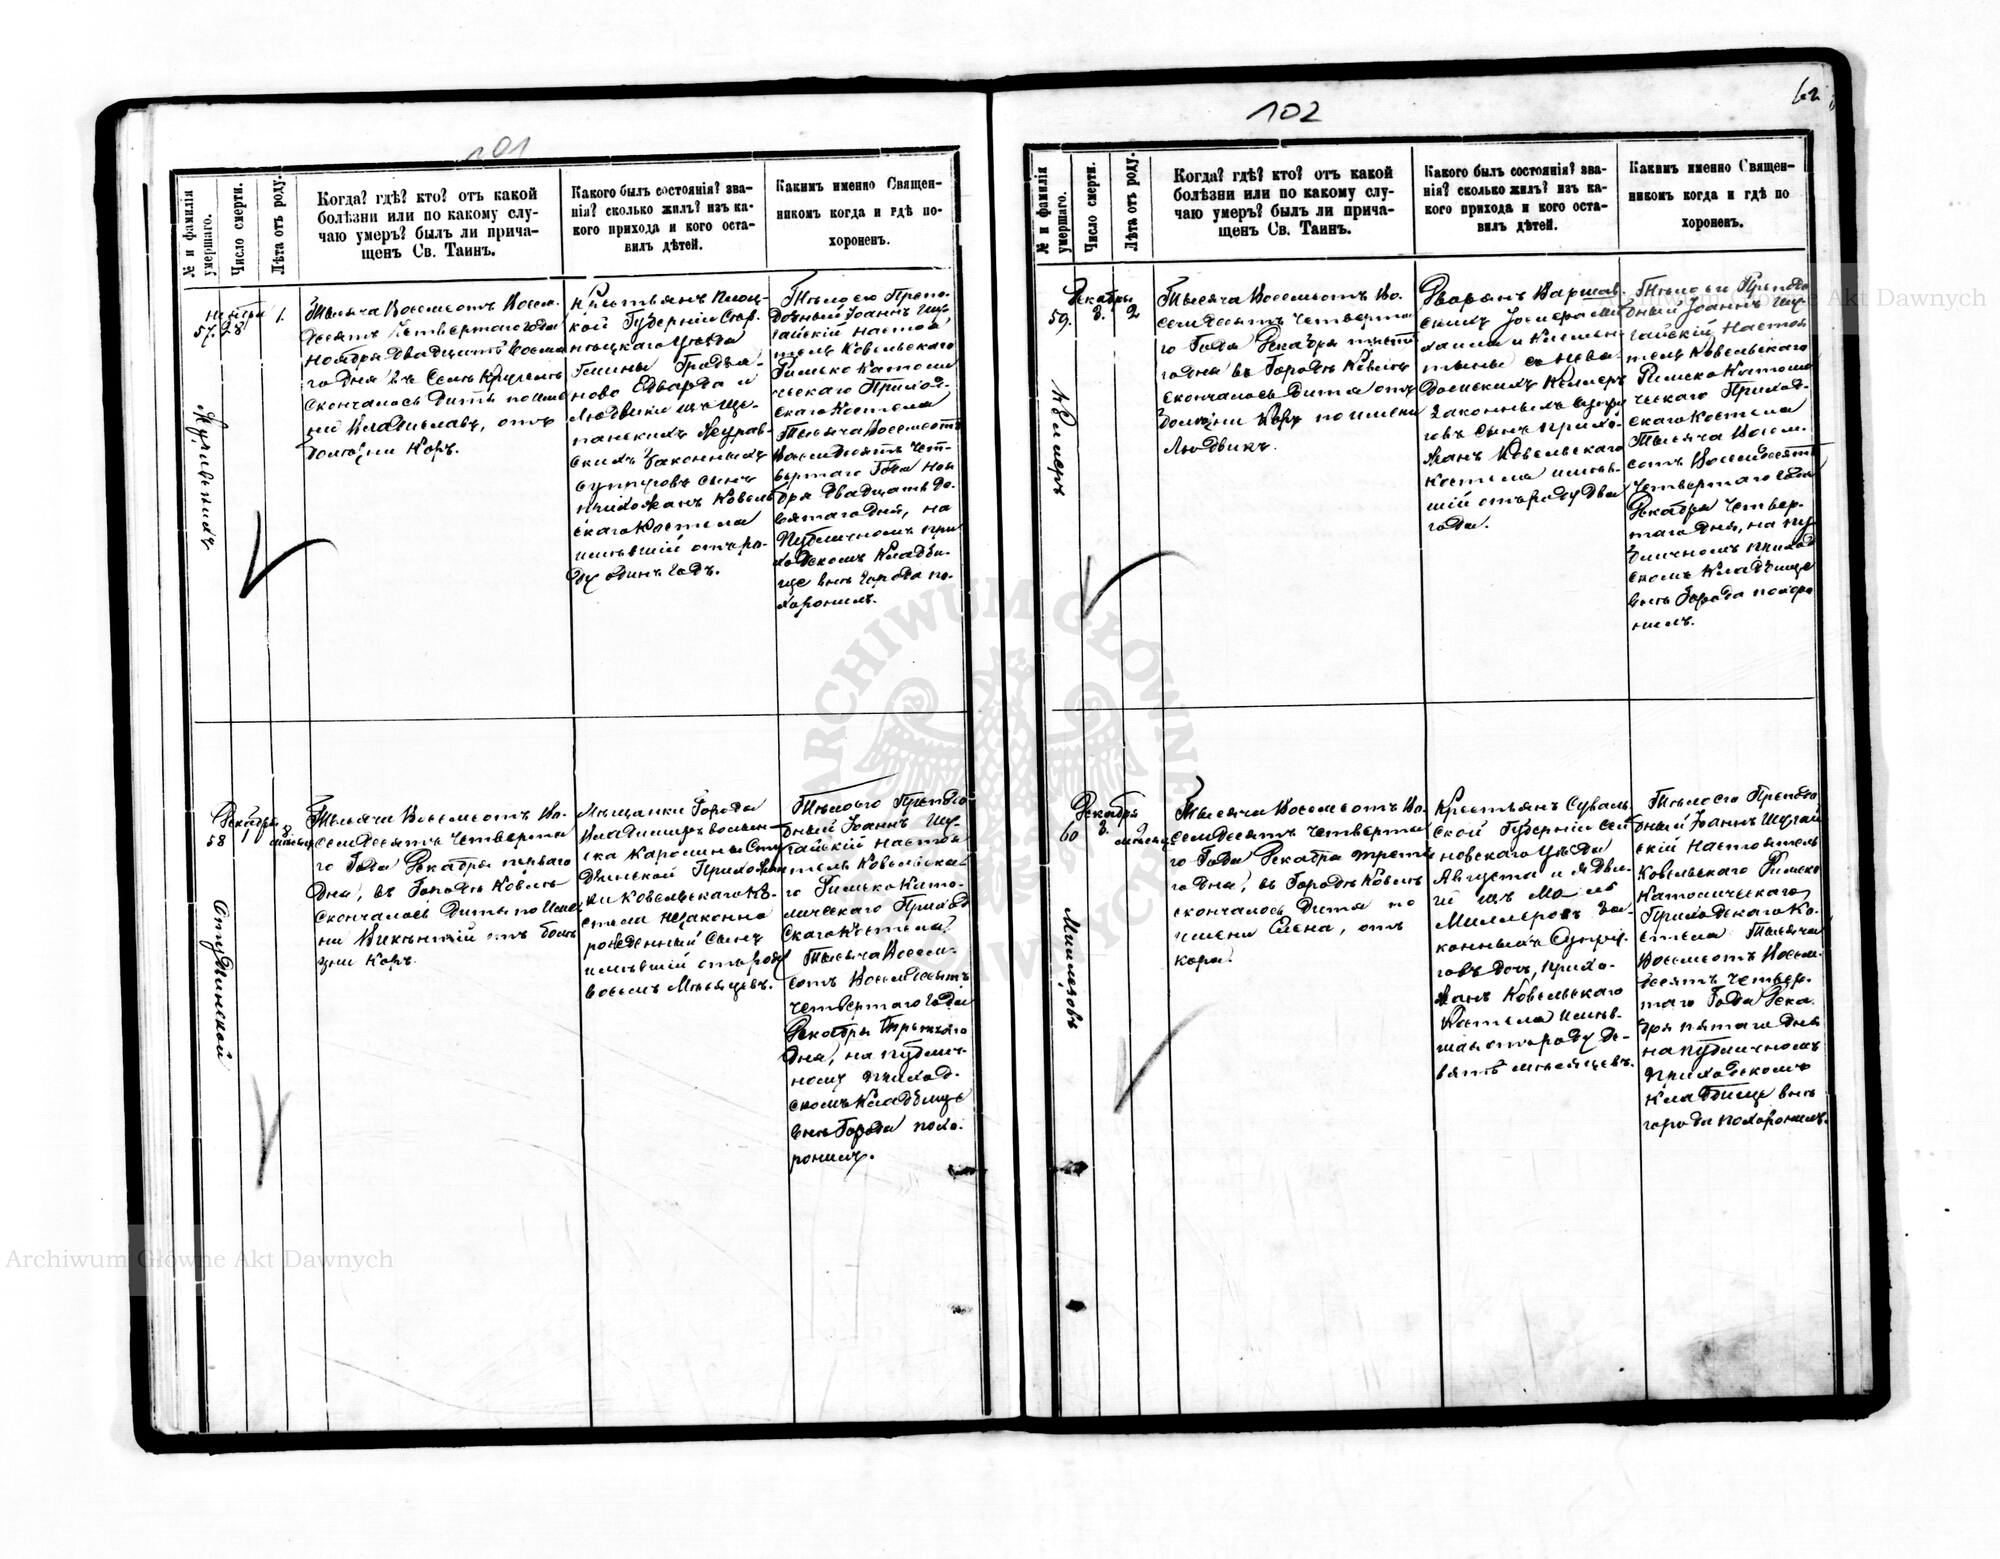 101
№ и фамилія умершаго.
Число смерти.
Лѣта отъ роду.
Когда? гдѣ? кто? отъ какой
болѣзни или по какому слу-
чаю умеръ? былъ ли прича-
щенъ Св. Таинъ.
Какого былъ состоянія? зва-
нія? сколько жилъ? изъ ка-
кого прихода и кого оста-
вилъ дѣтей.
Какимъ именно Священ-
никомъ когда и гдѣ по-
хороненъ.
57.
28
1.
Тысяча Восемьсотъ Восемь
десятъ Четвертаго года
Ноября двадцать Восьма
го дня въ Селѣ
скончалось Дитя по име
ни Владиславъ, отъ
болезни Коръ.
Крестьянъ Плоц-
кой Губерніи
Уѣзда
Гмины
ново Едварда и
Людвики изъ
законныхъ
супруговъ сынъ
прихожанъ Ковель
скаго Костела
имѣвшій отъ ро-
ду одинъ годъ.
Тѣло его Препо
добный Іоаннъ Шу
гайскій Настоя
тель Ковельскаго
Римско Католи
ческаго Приход
скаго Костела
Тысяча Восемьсотъ
Восемдесятъ Чет-
вертаго Года Ноя
бря двадцать де-
вятаго дня, на
Публичномъ при
ходскомъ Кладби-
ще внѣ Города по-
хоронилъ.
58
Декабря
1
8.
мѣсяц
Студзинской
Тысяча Восемьсотъ Во-
семдесятъ Четверта
го Года Декабря перваго
дня, въ Городѣ Ковель
скончалось Дитя по Име
ни Викентій отъ болѣ
зни Коръ.
Мѣщанки Города
Владиміръ волын-
ска Каролины Сту
дзинской Прихожан
ки Ковельскаго Ко
стела незаконно
рожденный Сынъ
имѣвшій отъ роду
восемь Мѣсяцевъ.
Тѣло его Преподо
бный Іоаннъ Шу-
гайскій Настоя
тель Ковельска-
го Римско Като-
лическаго Приход
скаго Костела
Тысяча Восемь-
сотъ Восемдесятъ
Четвертаго Года
Декабря Третьяго
дня, на публич-
ному приход-
скомъ Кладбище
внѣ Города похо-
ронилъ.
102
62
№ и фамилія умершаго.
Число смерти.
Лѣта отъ роду.
Когда? гдѣ? кто? отъ какой
болѣзни или по какому слу-
чаю умеръ? былъ ли прича-
щенъ Св. Таинъ.
Какого былъ состоянія? зва-
нія? сколько жилъ? изъ ка-
кого прихода и кого оста-
вилъ дѣтей.
Какимъ именно Священ-
никомъ когда и гдѣ по
хороненъ.
59.
Декабря
3.
2
Келлеръ
Тысяча Восемьсотъ Во-
семдесятъ Четверта
го Года Декабря треть
го дня въ Городѣ Ковель
скончалось Дитя отъ
болезни Коръ по имени
Людвикъ.
Дворянъ Варшав
скихъ
Келлеръ
Законныхъ Супру
говъ Сынъ прихо-
жанъ Ковельскаго
Костела имѣв-
шій отъ роду два
года.
Тѣло его Преподо
бный Іоаннъ Шу
гайскій Настоя
тель Ковельскаго
Римско Католи
ческаго Приход
скаго Костела
Тысяча Восемь-
сотъ Восемдесятъ
Четвертаго Года
Декабря Четвер-
таго дня, на пу
бличномъ приход
скомъ Кладбище
внѣ Города похоро
нилъ.
60
Декабря
3.
9
мѣсяц
Миллеровъ
Тысяча Восемьсотъ Во-
семдесятъ Четверта
го Года Декабря треть
го дня, въ Городѣ Ковель
скончалось Дитя по
имени Елена, отъ
кора.
Крестьянъ Суваль
ской Губерніи Сей
новскаго Уѣзда
Августа и Ядви-
ги изъ
Миллеровъ за-
конныхъ Супру-
говъ дочь, прихо-
жанъ Ковельскаго
Костела имѣв-
шая отъ роду де-
вять мѣсяцевъ.
Тѣло ею Преподо
бный Іоаннъ Шугай
скій Настоятель
Ковельскаго Римско
Католическаго
Приходскаго Ко-
стела Тысяча
Восемьсотъ Восемь
десятъ Четвер-
таго Года Дека
бря пятаго дня
на публичномъ
приходскомъ
Кладбище внѣ
города похоронилъ.
Archiwum Główne Akt Dawnych
Archiwum Główne Akt Dawnych
ARCHIWUM GŁÓWNE AKT DAWNYCH